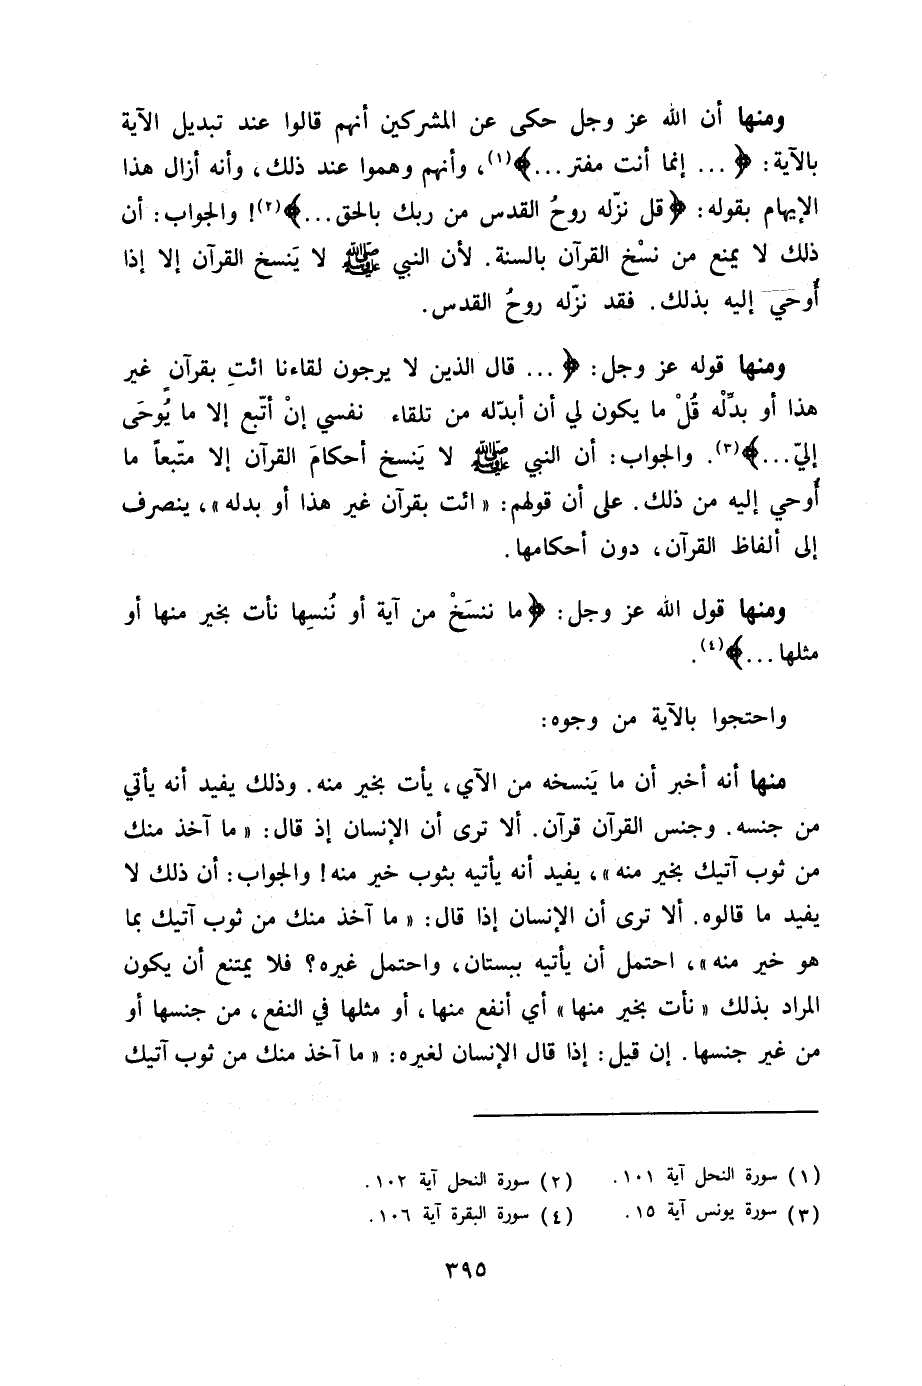 ومنها أن الله عز وجل حكى عن المشركين أنهم قالوا عند تبديل الآية
بالآية: ﴿... إنما أنت مفتر...﴾(١)، وأنهم وهموا عند ذلك، وأنه أزال هذا
الإيهام بقوله: ﴿قل نزّله روحُ القدس من ربك بالحق...﴾(٢)! والجواب: أن
ذلك لا يمنع من نسْخ القرآن بالسنة. لأن النبي ﷺ لا يَنسخ القرآن إلا إذا
أُوحي إليه بذلك. فقد نزّله روحُ القدس.
ومنها قوله عز وجل: ﴿... قال الذين لا يرجون لقاءنا ائتِ بقرآنٍ غير
هذا أو بدِّلْه قُلْ ما يكون لي أن أبدّله من تلقاء نفسي إنْ أتّبع إلا ما يُوحَى
إليّ...﴾(٣). والجواب: أن النبي ﷺ لا يَنسخ أحكامَ القرآن إلا متّبعاً ما
أُوحي إليه من ذلك. على أن قولهم: «ائت بقرآن غير هذا أو بدله»، ينصرف
إلى ألفاظ القرآن، دون أحكامها.
ومنها قول الله عز وجل: ﴿ما ننسَخْ من آية أو نُنسِها نأت بخير منها أو
مثلها...﴾(٤).
واحتجوا بالآية من وجوه:
منها أنه أخبر أن ما يَنسخه من الآي، يأت بخير منه. وذلك يفيد أنه يأتي
من جنسه. وجنس القرآن قرآن. ألا ترى أن الإنسان إذ قال: «ما آخذ منك
من ثوب آتيك بخير منه»، يفيد أنه يأتيه بثوب خير منه! والجواب: أن ذلك لا
يفيد ما قالوه. ألا ترى أن الإنسان إذا قال: «ما آخذ منك من ثوب آتيك بما
هو خير منه»، احتمل أن يأتيه ببستان، واحتمل غيره؟ فلا يمتنع أن يكون
المراد بذلك «نأت بخير منها» أي أنفع منها، أو مثلها في النفع، من جنسها أو
من غير جنسها. إن قيل: إذا قال الإنسان لغيره: «ما آخذ منك من ثوب آتيك
(١) سورة النحل آية ١٠١. (٢) سورة النحل آية ١٠٢.
(٣) سورة يونس آية ١٥. (٤) سورة البقرة آية ١٠٦.
٣٩٥